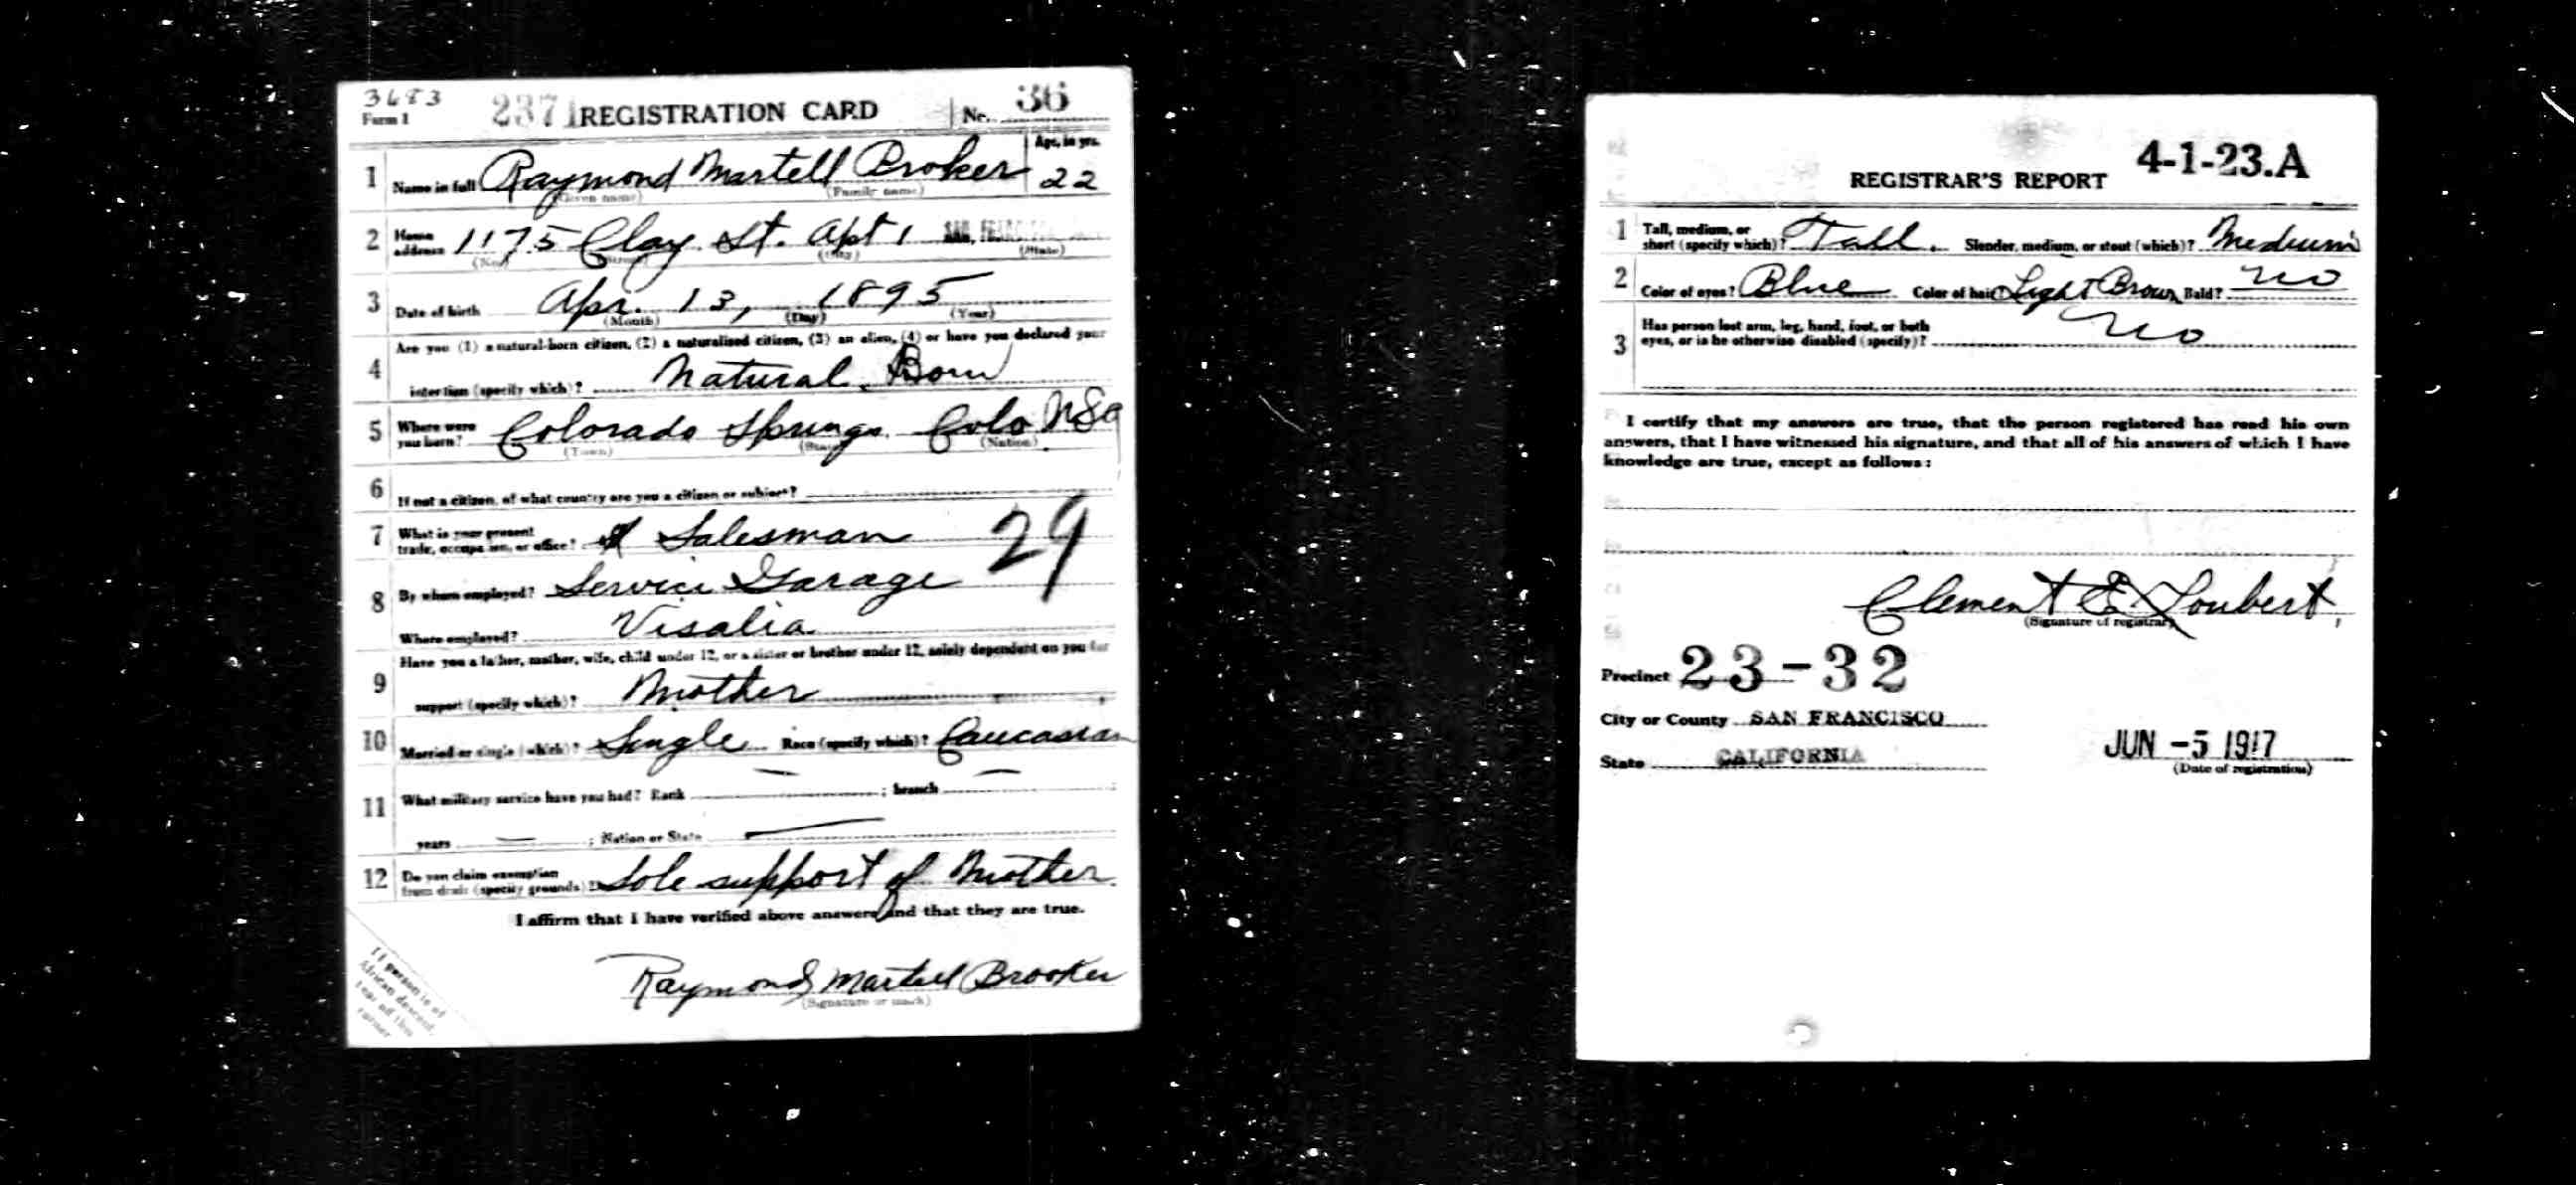 3683
Form 1 2371 REGISTRATION CARD No. 36
1 Name in full Raymond Martell Broker Age, in yrs. 22
(Given name) (Family name)
2 Home address 1175 Clay St. Apt 1 SAN FRANCISCO
(No.) (Street) (City) (State)
3 Date of birth Apr. 13, 1895
(Month) (Day) (Year)
4 Are you (1) a natural-born citizen, (2) a naturalized citizen, (3) an alien, (4) or have you declared your
intention (specify which)? Natural Born
5 Where were you born? Colorado Springs Colo USA
(Town) (State) (Nation)
6 If not a citizen, of what country are you a citizen or subject?
7 What is your present trade, occupation, or office? Salesman 29
8 By whom employed? Service Garage
Where employed? Visalia
9 Have you a father, mother, wife, child under 12, or a sister or brother under 12, solely dependent on you for
support (specify which)? Mother
10 Married or single (which)? Single Race (specify which)? Caucasian
11 What military service have you had? Rank — ; branch —
years — ; Nation or State —
12 Do you claim exemption from draft (specify grounds)? Sole support of Mother.
I affirm that I have verified above answers and that they are true.
Raymond Martell Brooker
(Signature or mark)
If person is of
African descent,
tear off this
corner
REGISTRAR'S REPORT 4-1-23.A
1 Tall, medium, or short (specify which)? Tall. Slender, medium, or stout (which)? Medium
2 Color of eyes? Blue Color of hair? Light Brown Bald? no
3 Has person lost arm, leg, hand, foot, or both eyes, or is he otherwise disabled (specify)? no
I certify that my answers are true, that the person registered has read his own
answers, that I have witnessed his signature, and that all of his answers of which I have
knowledge are true, except as follows:
Clement E. Loubert,
(Signature of registrar)
Precinct 23-32
City or County SAN FRANCISCO
State CALIFORNIA
JUN -5 1917
(Date of registration)